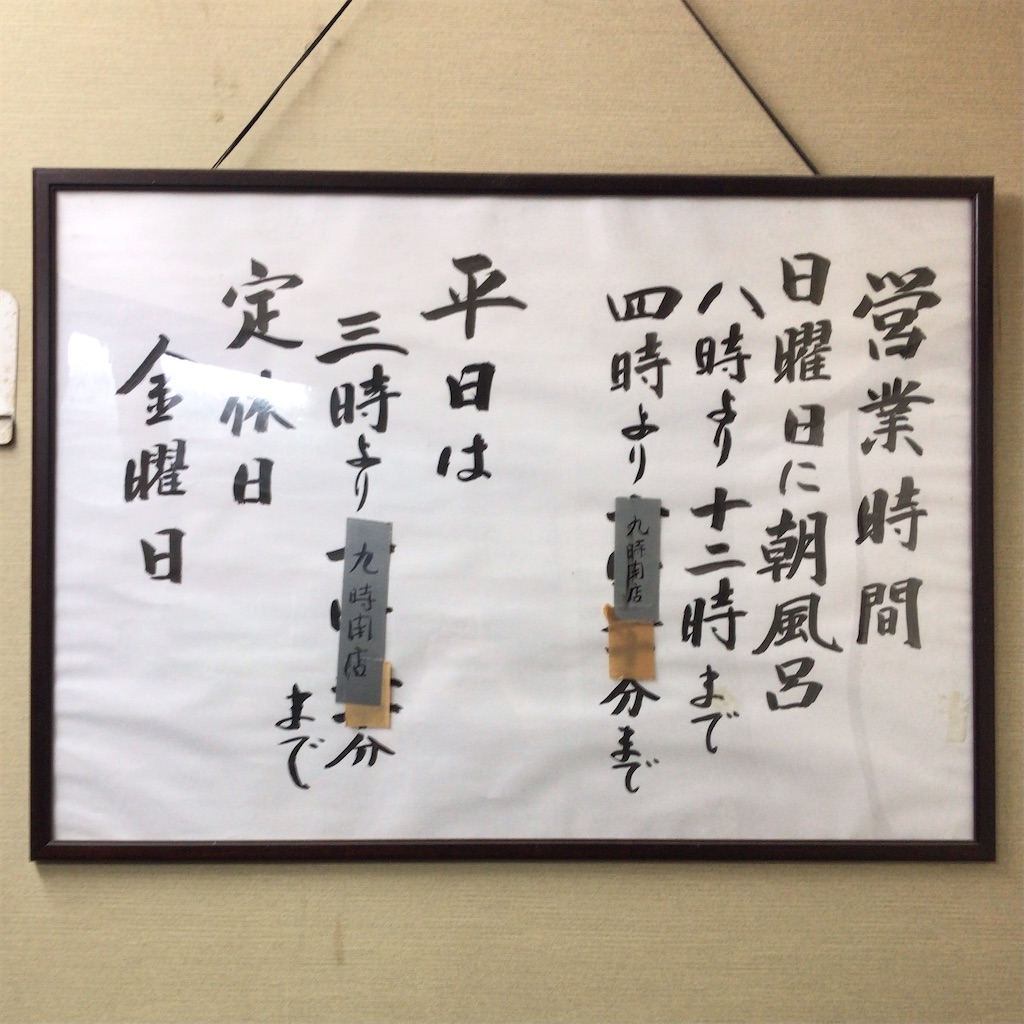 営業時間
日曜日に朝風呂
八時より十二時まで
四時より九時閉店分まで
平日は
三時より九時閉店分
まで
定休日
金曜日